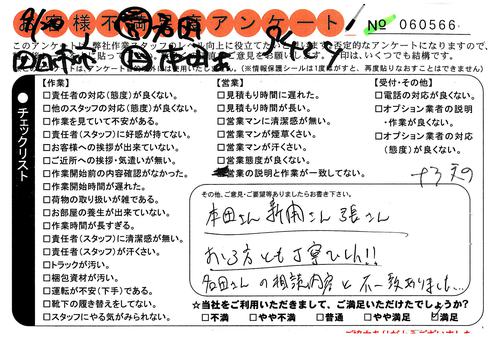 お客様不満足度アンケート
№ 060566
このアンケートは、弊社作業スタッフのレベル向上に役立てたいと思います。否定的なアンケートになりますので、
印は、いくつでも結構です。
(※情報保護シールは1度はがすと、再度貼りなおすことはできません)
チェックリスト
【作業】
□責任者の対応(態度)が良くない。
□他のスタッフの対応(態度)が良くない。
□作業を見ていて不安がある。
□責任者(スタッフ)に好感が持てない。
□お客様への挨拶が出来ていない。
□ご近所への挨拶・気遣いが無い。
□作業開始前の内容確認がなかった。
□作業開始時間が遅れた。
□荷物の取り扱いが雑である。
□お部屋の養生が出来ていない。
□作業時間が長すぎる。
□責任者(スタッフ)に清潔感が無い。
□責任者(スタッフ)が汗くさい。
□トラックが汚い。
□梱包資材が汚い。
□運転が安全(下手)である。
□靴下の履き替えをしてない。
□スタッフにやる気がみられない。
【営業】
□見積もり時間に遅れた。
□見積もり時間が長い。
□営業マンに清潔感が無い。
□営業マンが煙草くさい。
□営業マンが汗くさい。
□営業態度が良くない。
営業の説明と作業が一致してない。
【受付・その他】
□電話の対応が良くない。
□オプション業者の説明
・作業が良くない。
□オプション業者の対応
(態度)が良くない。
その他、ご意見・ご要望等ありましたらお書き下さい。
本田さん 新開さん 張さん
お三方とも丁寧でした!!
名田さんの相談内容と不一致ありました…
☆当社をご利用いただきまして、ご満足いただけたでしょうか?
□不満 □やや不満 □普通 □やや満足 満足